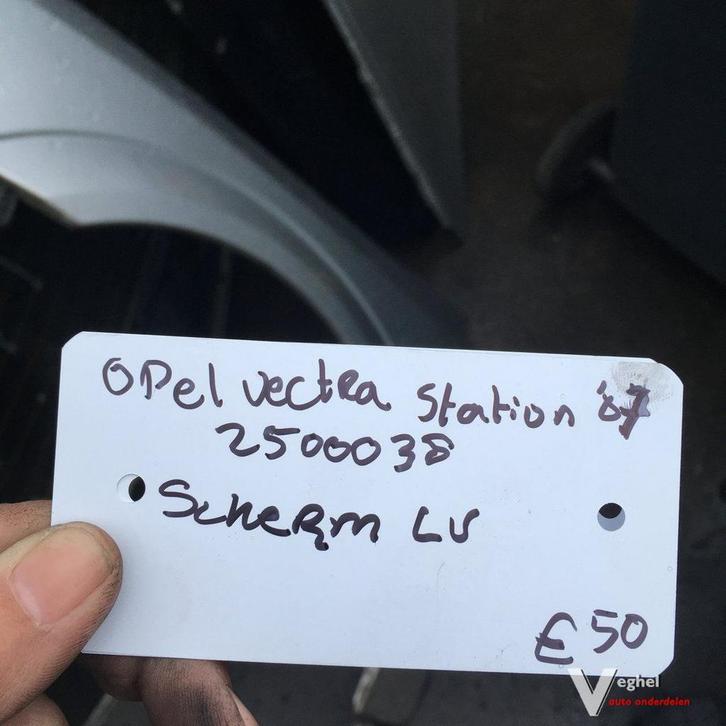 Opel vectra Station '07
2500038
Scherm LV
€50
Veghel
auto onderdelen